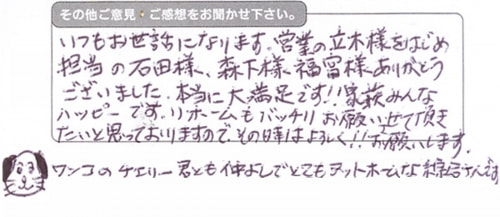 その他ご意見・ご感想をお聞かせ下さい。
いつもお世話になります。営業の立木様をはじめ
担当の石田様、森下様、福富様ありがとう
ございました。本当に大満足です!!家族みんな
ハッピーです。リホームもバッチリお願いさせて頂き
たいと思っておりますので、その時はよろしく!!お願いします。
ワンコのチェリー君とも仲よしでとてもアットホームな さんです